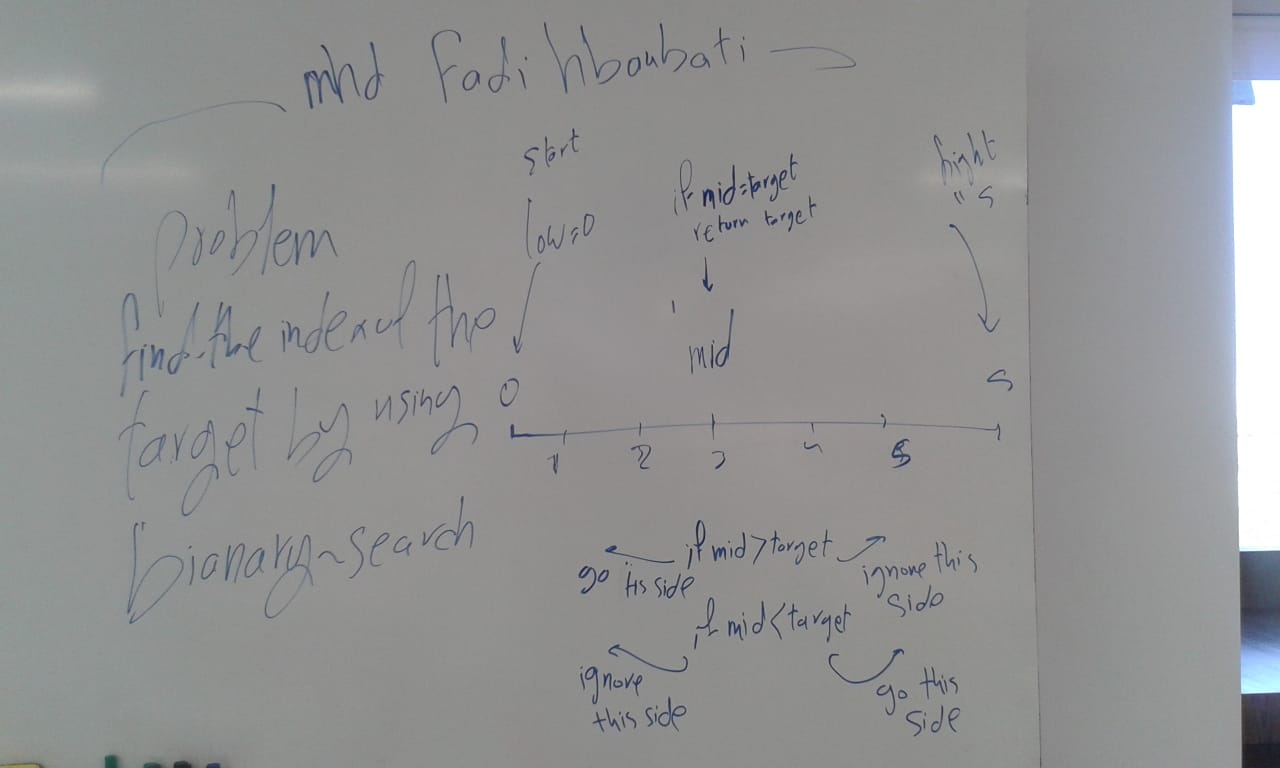 mhd Fadi hboubati
problem
find the index of the
target by using
bianary-search
start
low=0
if mid=target
return target
mid
hight
" 5
0
5
1 2 3 4 5
if mid>target
go tis side
ignore this
side
if mid<target
ignore
this side
go this
side